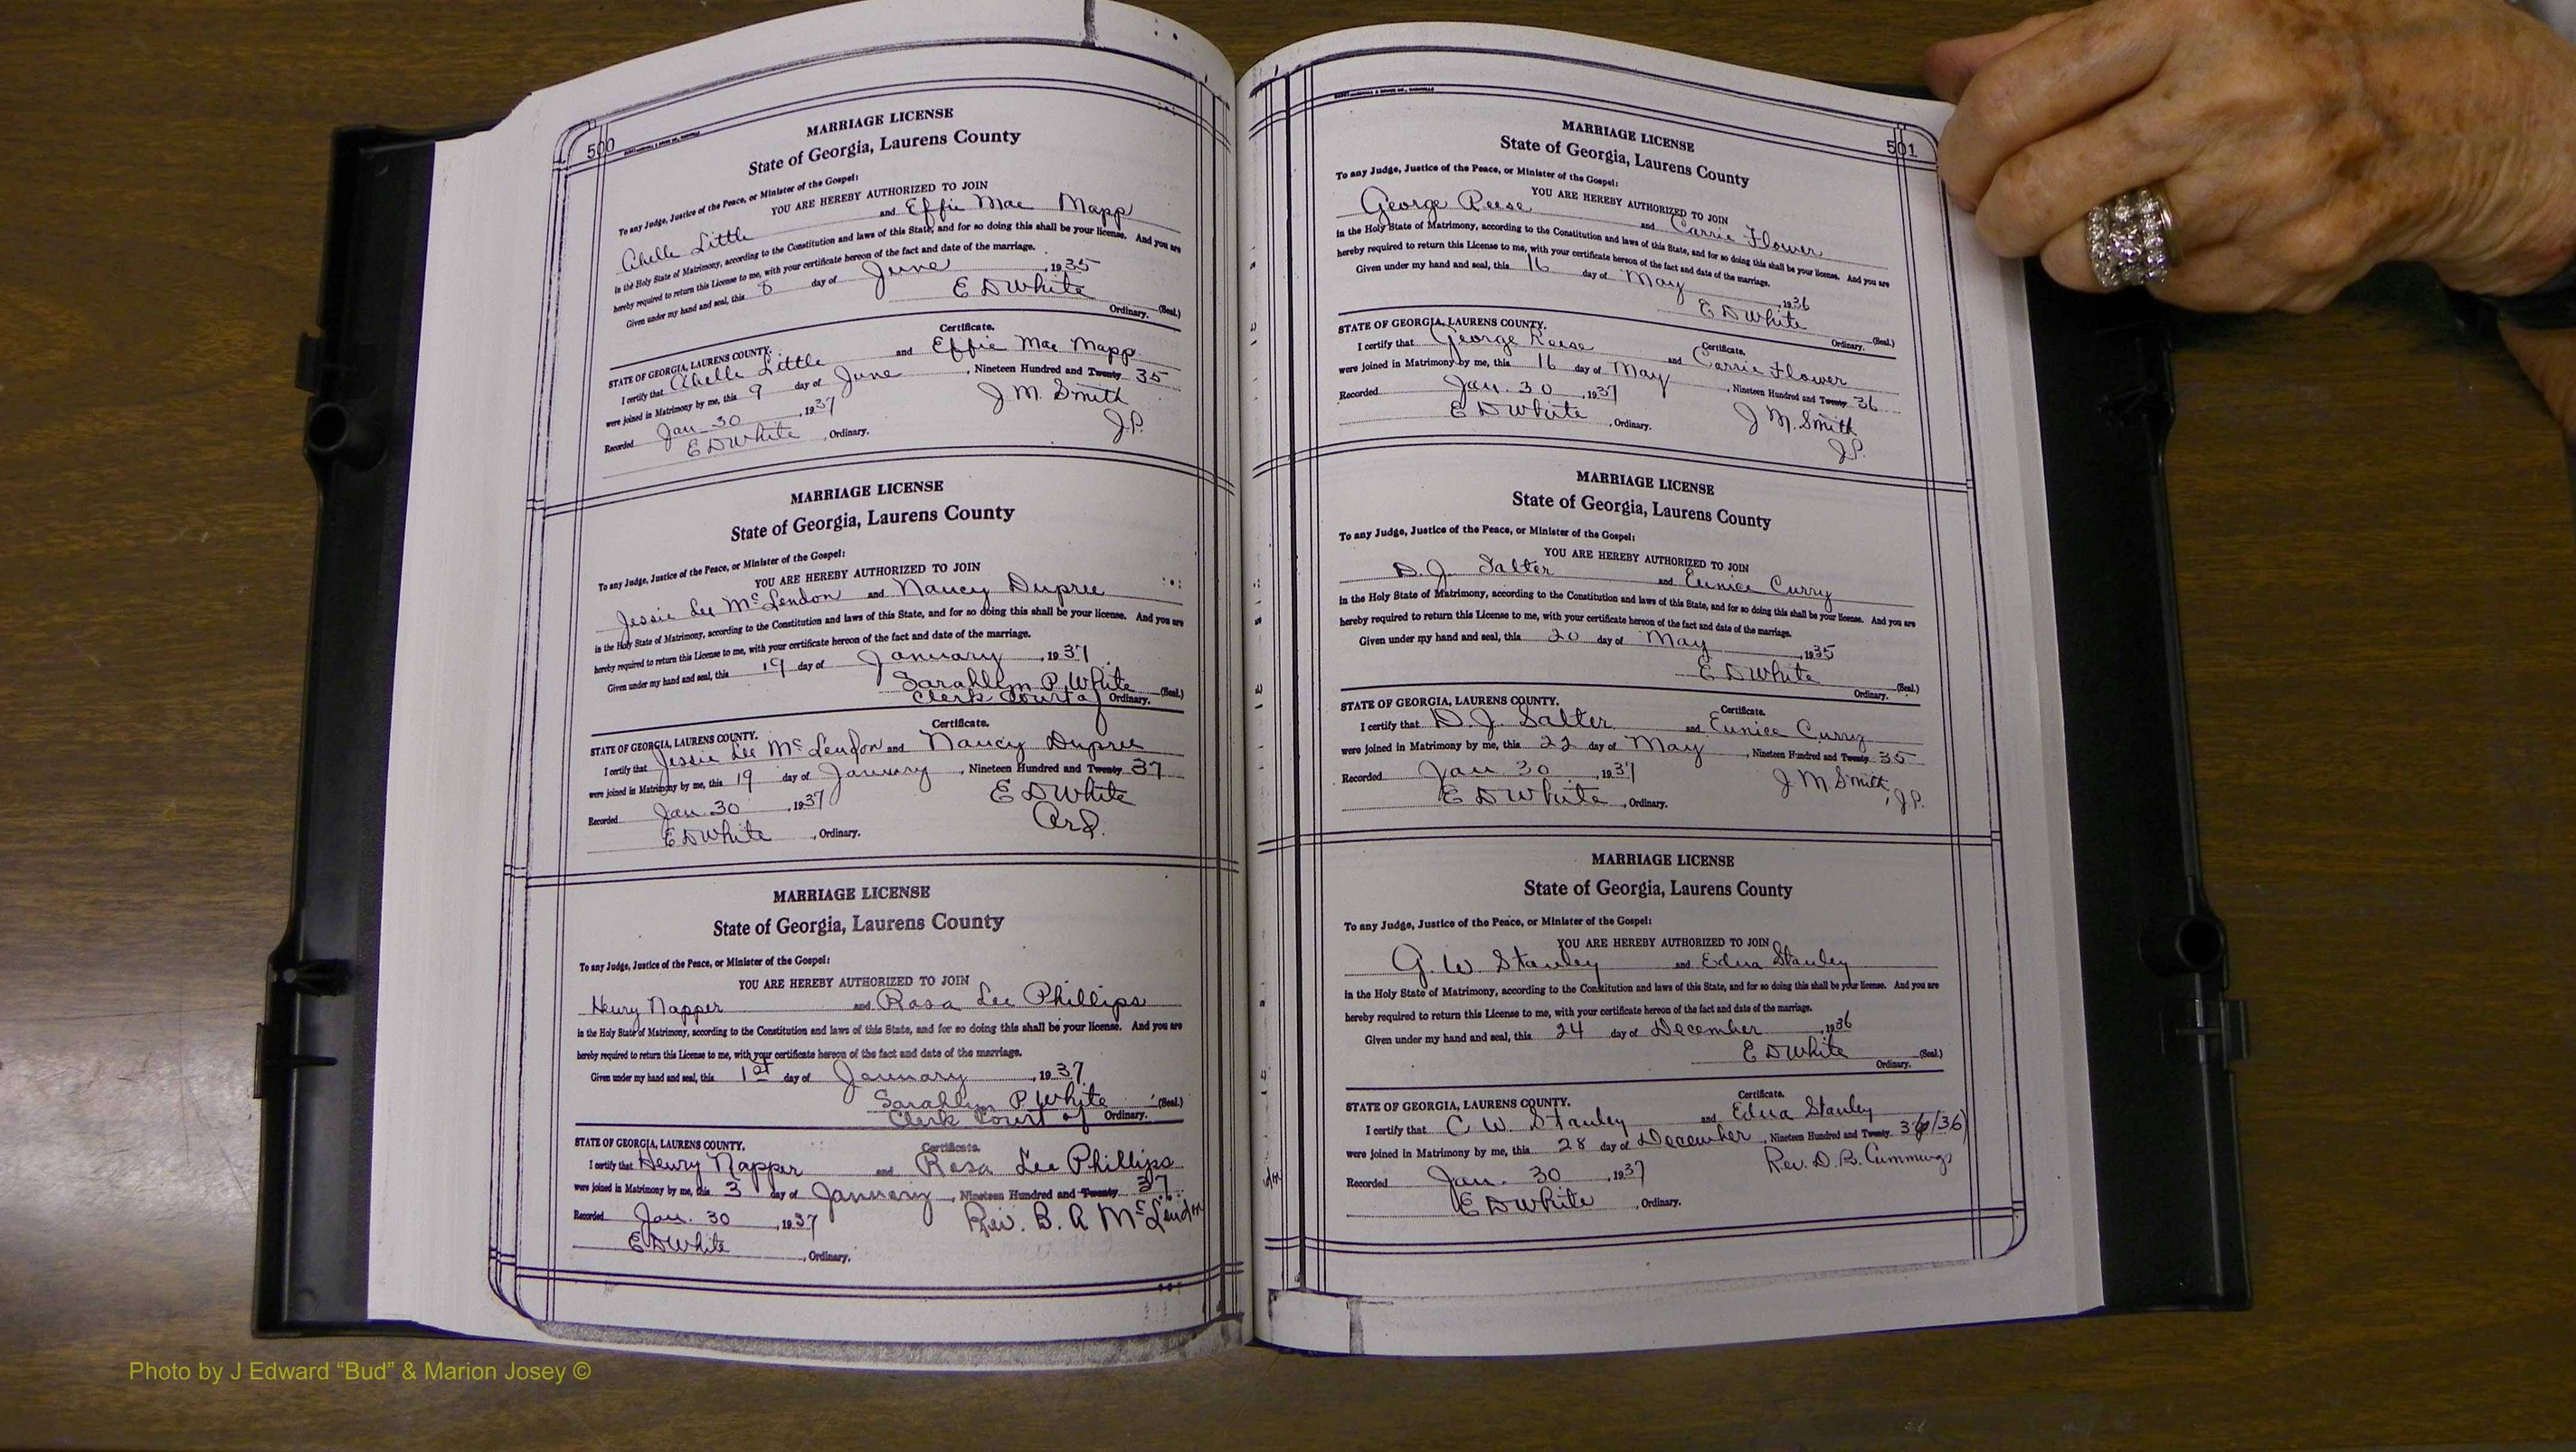 500
MARRIAGE LICENSE
State of Georgia, Laurens County
To any Judge, Justice of the Peace, or Minister of the Gospel:
YOU ARE HEREBY AUTHORIZED TO JOIN
Little and Effie Mae Mapp
in the Holy State of Matrimony, according to the Constitution and laws of this State, and for so doing this shall be your license. And you are
hereby required to return this License to me, with your certificate hereon of the fact and date of the marriage.
Given under my hand and seal, this 8 day of June, 1935
E D White
Ordinary. (Seal.)
Certificate.
STATE OF GEORGIA, LAURENS COUNTY.
I certify that Little and Effie Mae Mapp
were joined in Matrimony by me, this 9 day of June, Nineteen Hundred and Twenty 35
Recorded Jan. 30, 1937 J. M. Smith
E D White, Ordinary. J.P.
MARRIAGE LICENSE
State of Georgia, Laurens County
To any Judge, Justice of the Peace, or Minister of the Gospel:
YOU ARE HEREBY AUTHORIZED TO JOIN
Jessie Lee McLendon and Nancy Dupree
in the Holy State of Matrimony, according to the Constitution and laws of this State, and for so doing this shall be your license. And you are
hereby required to return this License to me, with your certificate hereon of the fact and date of the marriage.
Given under my hand and seal, this 19 day of January, 1937
Sarahlyn P. White (Seal.)
Clerk Court of Ordinary.
Certificate.
STATE OF GEORGIA, LAURENS COUNTY.
I certify that Jessie Lee McLendon and Nancy Dupree
were joined in Matrimony by me, this 19 day of January, Nineteen Hundred and Twenty 37
Recorded Jan. 30, 1937 E D White
E D White, Ordinary. Ord.
MARRIAGE LICENSE
State of Georgia, Laurens County
To any Judge, Justice of the Peace, or Minister of the Gospel:
YOU ARE HEREBY AUTHORIZED TO JOIN
Henry Napper and Rosa Lee Phillips
in the Holy State of Matrimony, according to the Constitution and laws of this State, and for so doing this shall be your license. And you are
hereby required to return this License to me, with your certificate hereon of the fact and date of the marriage.
Given under my hand and seal, this 1st day of January, 1937
Sarahlyn P. White (Seal.)
Clerk Court of Ordinary.
Certificate.
STATE OF GEORGIA, LAURENS COUNTY.
I certify that Henry Napper and Rosa Lee Phillips
were joined in Matrimony by me, this 3 day of January, Nineteen Hundred and Twenty 37
Recorded Jan. 30, 1937 Rev. B. A. McLendon
E D White, Ordinary.
501
MARRIAGE LICENSE
State of Georgia, Laurens County
To any Judge, Justice of the Peace, or Minister of the Gospel:
YOU ARE HEREBY AUTHORIZED TO JOIN
George Reese and Carrie Flower
in the Holy State of Matrimony, according to the Constitution and laws of this State, and for so doing this shall be your license. And you are
hereby required to return this License to me, with your certificate hereon of the fact and date of the marriage.
Given under my hand and seal, this 16 day of May, 1936
E D White
Ordinary. (Seal.)
Certificate.
STATE OF GEORGIA, LAURENS COUNTY.
I certify that George Reese and Carrie Flower
were joined in Matrimony by me, this 16 day of May, Nineteen Hundred and Twenty 36
Recorded Jan. 30, 1937 J. M. Smith
E D White, Ordinary. J.P.
MARRIAGE LICENSE
State of Georgia, Laurens County
To any Judge, Justice of the Peace, or Minister of the Gospel:
YOU ARE HEREBY AUTHORIZED TO JOIN
D. J. Salter and Eunice Curry
in the Holy State of Matrimony, according to the Constitution and laws of this State, and for so doing this shall be your license. And you are
hereby required to return this License to me, with your certificate hereon of the fact and date of the marriage.
Given under my hand and seal, this 20 day of May, 1935
E D White
Ordinary. (Seal.)
Certificate.
STATE OF GEORGIA, LAURENS COUNTY.
I certify that D. J. Salter and Eunice Curry
were joined in Matrimony by me, this 22 day of May, Nineteen Hundred and Twenty 35
Recorded Jan. 30, 1937 J. M. Smith, J.P.
E D White, Ordinary.
MARRIAGE LICENSE
State of Georgia, Laurens County
To any Judge, Justice of the Peace, or Minister of the Gospel:
YOU ARE HEREBY AUTHORIZED TO JOIN
G. W. Stanley and Edna Stanley
in the Holy State of Matrimony, according to the Constitution and laws of this State, and for so doing this shall be your license. And you are
hereby required to return this License to me, with your certificate hereon of the fact and date of the marriage.
Given under my hand and seal, this 24 day of December, 1936
E D White (Seal.)
Ordinary.
Certificate.
STATE OF GEORGIA, LAURENS COUNTY.
I certify that C. W. Stanley and Edna Stanley
were joined in Matrimony by me, this 28 day of December, Nineteen Hundred and Twenty 36 (36)
Recorded Jan. 30, 1937 Rev. D. B. Cummings
E D White, Ordinary.
Photo by J Edward “Bud” & Marion Josey ©